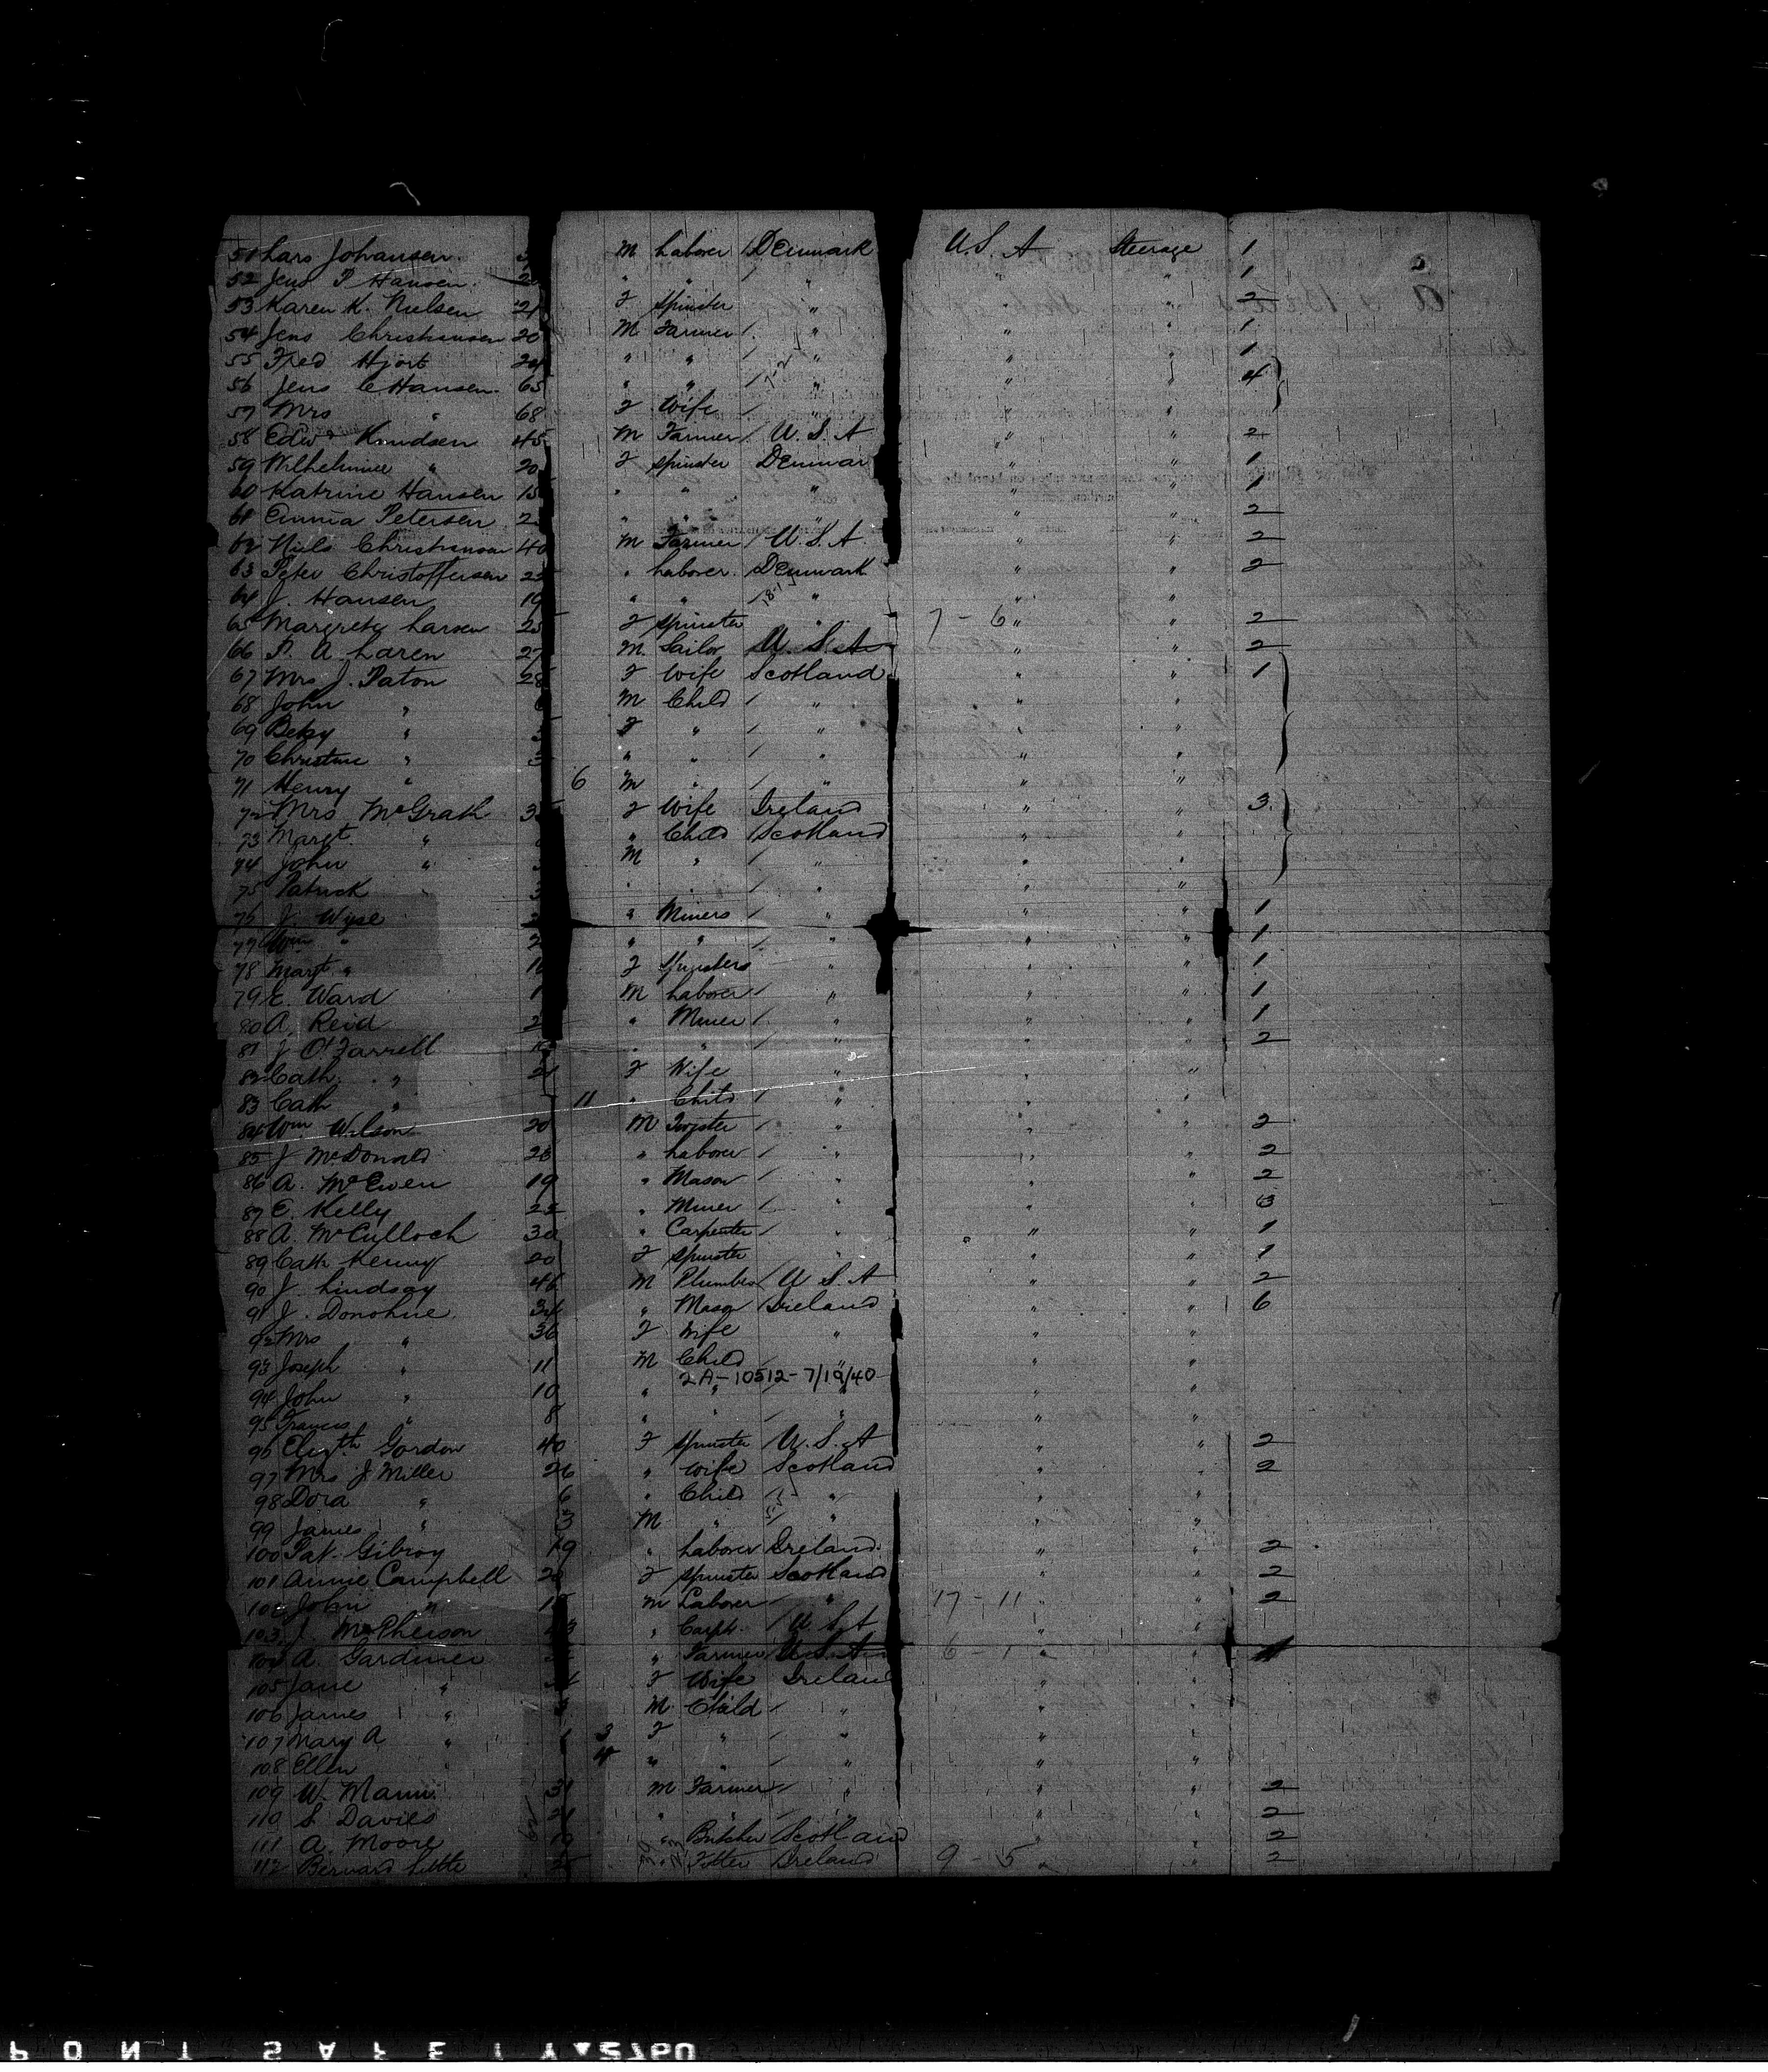 51 Lars Johansen. 3 M Laborer / Denmark U.S.A Steerage 1
52 Jens P Hansen. 2 " " / " " " 1
53 Karen K. Nielsen 21 F Spinster " " " 2
54 Jens Christiansen 20 M Farmer / " " " 1
55 Fred Hjort 24 " " / " " " 1
56 Jens C Hansen. 65 " " / " " " 4
57 Mrs " 68 F Wife / " "
58 Edw Knudsen 45 M Farmer / U.S.A " " 2
59 Wilhelmine " 20 F Spinster Denmar " " 1
60 Katrine Hansen 15 " " " " " 1
61 Emma Petersen 2 " " " " " 2
62 Niels Christiansen 40 M Farmer / U.S.A. " " 2
63 Peter Christoffersen 25 " Laborer. Denmark " " 2
64 J. Hansen 19 " " / " " "
65 Margrete Larsen 25 F Spinster " 7 - 6 " " 2
66 P. A Laren 27 M. Sailor U.S.A " " 2
67 Mrs J. Paton 28 F Wife Scotland " " 1
68 John " 6 M Child / " " "
69 Betsy " F " / " " "
70 Christine " 3 " " / " " "
71 Henry " 6 M " / " " "
72 Mrs McGrath 3 F Wife Ireland " " 3
73 Margt. " " Child / Scotland " "
74 John " M " / " " "
75 Patrick " " " / " " "
76 J. Wyse 2 " Miners / " " " 1
77 Wm " 2 " " / " " " 1
78 Margt " 1 F Spinsters " " " 1
79 E. Ward 1 M Laborer / " " " 1
80 A. Reid 2 " Miner / " " " 1
81 J O'Farrell " " / " " " 2
82 Cath. " 21 F Wife " " "
83 Cath " 11 " Child / " " "
84 Wm Wilson 20 M / " " " 2
85 J McDonald 26 " Laborer / " " " 2
86 A. McEwen 19 " Mason / " " " 2
87 E. Kelly 25 " Miner / " " " 3
88 A. McCulloch 30 " Carpenter / " " " 1
89 Cath Kenny 20 F Spinster " " " 1
90 J. Lindsay 46 M Plumber / U S. A " " 2
91 J. Donohue. 34 " Mason / Ireland " " 6
92 Mrs " 36 F Wife " " "
93 Joseph " 11 M Child / " " "
2A-10512-7/19/40
94 John " 10 " " / " " "
95 Francis " 8 " " / " " "
96 Elizth Gordon 40 F Spinster / U.S.A " " 2
97 Mrs J Miller 26 " Wife Scotland " " 2
98 Dora " 6 " Child / " " "
99 James " 3 M " / " " "
100 Pat. Gilroy 19 " Laborer Ireland. " " 2
101 Annie Campbell 2 F Spinster Scotland " " 2
102 John " 1 M Laborer / " 17 - 11 " " 2
103 J. McPherson 43 " Carptr. / U.S.A " "
104 A. Gardiner " Farmer U.S.A 6 - 1 " " 4
105 Jane " F Wife Ireland " "
106 James " M Child / " " "
107 Mary A " 3 F " / " " "
108 Ellen " 4 " " / " " "
109 W. Mann 31 M Farmer / " " " 2
110 S Davies 21 " " / " " " 2
111 A. Moore 19 " Butcher / Scotland " " 2
112 Bernard Little 25 " Fitter / Ireland 9 - 5 " " 2
PONT SAFETY 2760